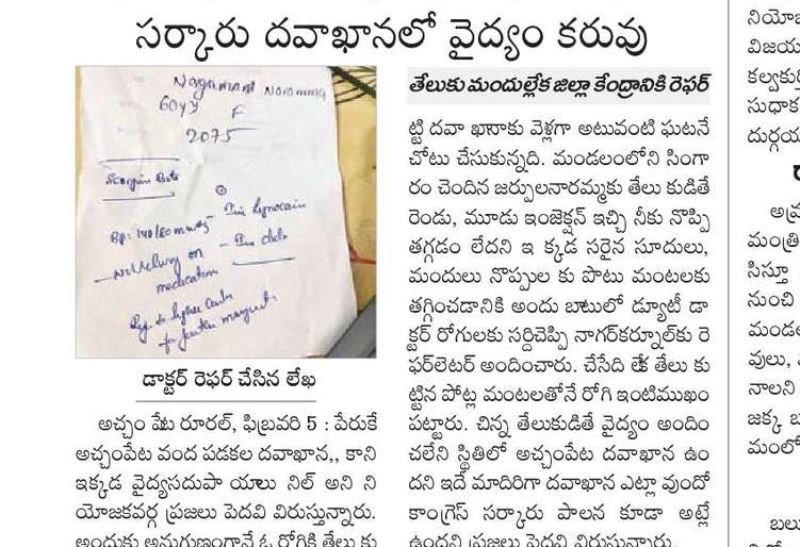 సర్కారు దవాఖానలో వైద్యం కరువు
Nagamani Naramma
60yy F
2075
Scorpion Bite
BP: 140/80 mmHg
Inj Lynocain
Inj diclo
on
medication
Ref to higher Center
for further
డాక్టర్ రెఫర్ చేసిన లేఖ
అచ్చం పేట రూరల్, ఫిబ్రవరి 5 : పేరుకే
అచ్చంపేట వంద పడకల దవాఖాన,, కాని
ఇక్కడ వైద్యసదుపా యాలు నిల్ అని ని
యోజకవర్గ ప్రజలు పెదవి విరుస్తున్నారు.
అందుకు అనుగుణంగానే ఓ రోగికి తేలు కు
తేలుకు మందుల్లేక జిల్లా కేంద్రానికి రెఫర్
ట్టి దవా ఖానాకు వెళ్లగా అటువంటి ఘటనే
చోటు చేసుకున్నది. మండలంలోని సింగా
రం చెందిన జర్పులనారమ్మకు తేలు కుడితే
రెండు, మూడు ఇంజెక్షన్ ఇచ్చి నీకు నొప్పి
తగ్గడం లేదని ఇ క్కడ సరైన సూదులు,
మందులు నొప్పుల కు పొటు మంటలకు
తగ్గించడానికి అందు బాటులో డ్యూటీ డా
క్టర్ రోగులకు సర్దిచెప్పి నాగర్‌కర్నూల్‌కు రె
ఫర్‌లెటర్ అందించారు. చేసేది లేక తేలు కు
ట్టిన పోట్ల మంటలతోనే రోగి ఇంటిముఖం
పట్టారు. చిన్న తేలుకుడితే వైద్యం అందిం
చలేని స్థితిలో అచ్చంపేట దవాఖాన ఉం
దని ఇదే మాదిరిగా దవాఖాన ఎట్లా వుందో
కాంగ్రెస్ సర్కారు పాలన కూడా అట్లే
ఉందని ప్రజలు పెదవి విరుస్తున్నారు.
నియోజ
విజయ
కల్వకుర్
సుధాక
దుర్గయ
అప్ర
మంత్రి
సిస్తూ
నుంచి
మండల
వులు,
నాలని
జక్క బ
మంలో
బలు